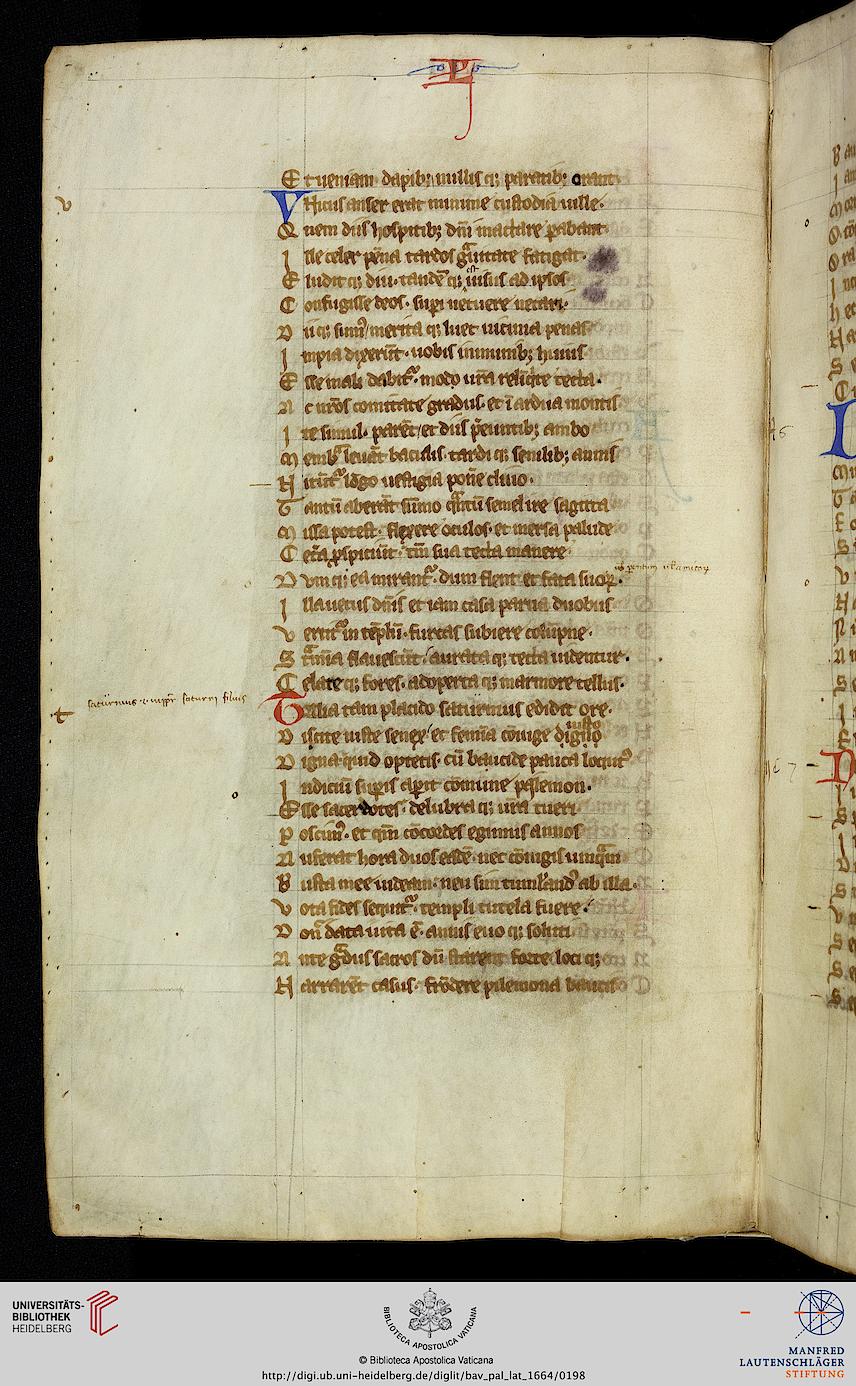 P
E t ueniam dapib; nullis q; paratib; orant
V nicus anser erat minime custodia uille.
v
Q uem diis hospitib; dñi mactare pabant
I lle celer pēna tardos guitate fatigat.
E ludit q; diu. tandē q; ē uisus ad ipsos
C onfugisse deos. supi uetuere necari.
D ii q; sumꝰ merita q; luet uicinia penas
I mpia dixerūt. uobis inmunib; huius
E sse mali dabitᷣ. modo urā relinqte tecta.
A c nrōs comitate gradus. et ī ardua montis
I te simul. parēt et diis peuntib; ambo
M embª leuāt baculis. tardi q; senilib; annis
N itūtᷣ lōgo uestigia pone cliuo.
T antū aberāt sūmo qntū semel ire sagitta
M issa potest. flexere oculos. et mersa palude
C etªa pspiciūt. tm̄ sua tecta manere
D vm q; ea mirantᷣ. dum flent et fata suoꝝ.
I lla uetus dn̄is et iam casa parua duobus
V ertitᷣ in tēplū. furcas subiere colūpne.
S tªmīa flauescūt. aurata q; tecta uidentur.
C elate q; fores. adoperta q; marmore tellus.
saturnius .i. iuppr saturni filius
t
T alia tam placido saturnius edidit ore.
iusto
D iscite iuste senex et femīa cōiuge digno
D igna quid optetis. cū baucide pauca locutꝰ
I ndiciū supis apit cōmune pylemon.
E sse sacerdotes. delubra q; urā tueri
P oscimꝰ. et qm̄ cōcordes egimus annos
A uferat hora duos eadē. nec cōiugis umqm
B usta mee uideam. neu sim tumulandꝰ ab illa.
V ota fides sequitᷣ. templi tutela fuere.
D on̄ data uita ē. annis euo q; soluti
A nte gdus sacros dū starent forte. loci q;
N arrarēt casus. frōdere pilemona baucis
UNIVERSITÄTS-
BIBLIOTHEK
HEIDELBERG
BIBLIOTECA APOSTOLICA VATICANA
© Biblioteca Apostolica Vaticana
http://digi.ub.uni-heidelberg.de/diglit/bav_pal_lat_1664/0198
MANFRED
LAUTENSCHLÄGER
STIFTUNG